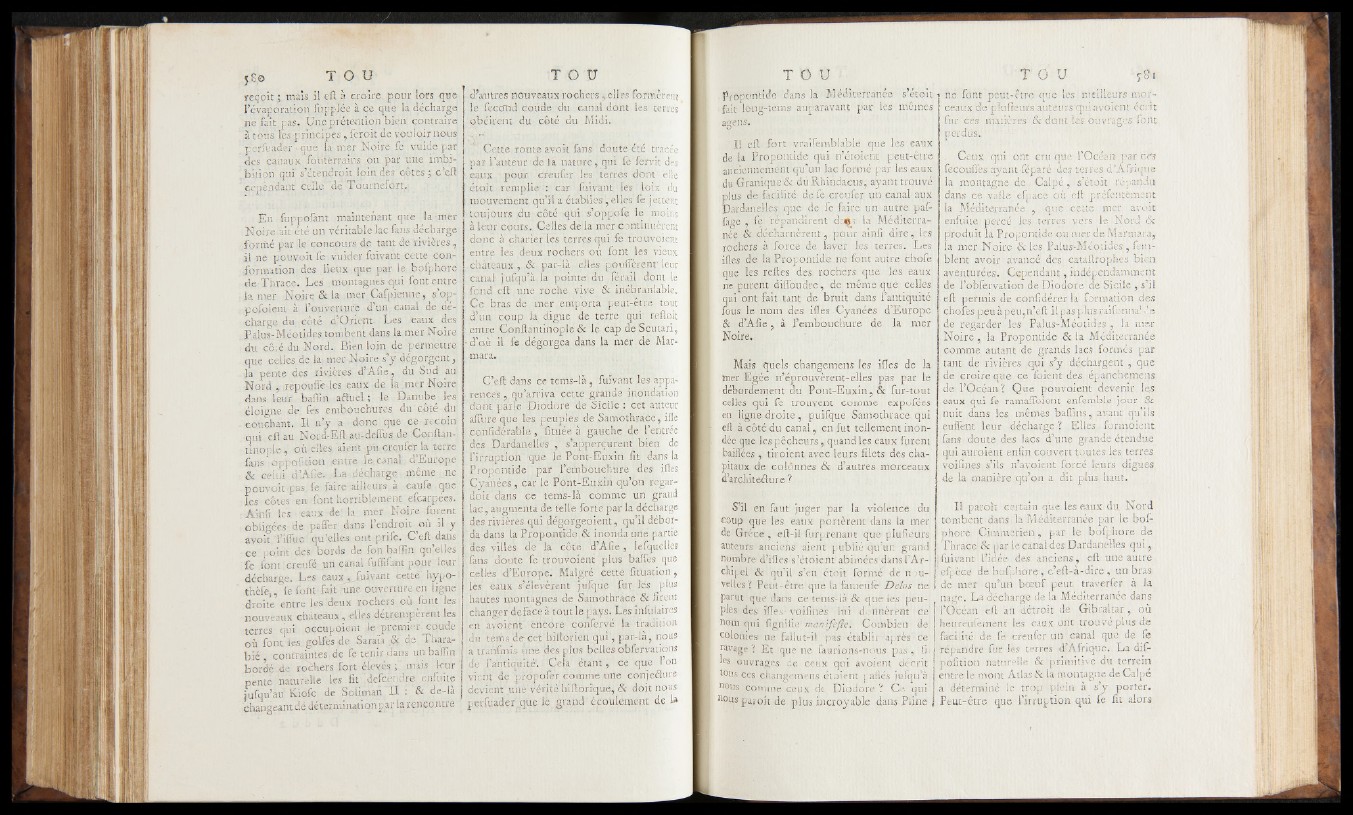 580 T O U
reçoit ; mais il eſt à croire pour lors que
l'évaporation ſuppléé à ce que la décharge
ne fait pas. Une prétention bien contraire
à tous les principes, ſeroit de vouloir nous
perſuader que la mer Noire ſe vuide par
des canaux ſouterrains ou par une imbi-
bition qui s'étendroit loin des côtes ; c'eſt
cependant celle de Tournefort.
En ſuppoſant maintenant que la mer
Noire ait été un véritable lac ſans décharge
formé par le concours de tant de rivières,
il ne pouvoit ſe vuider ſuivant cette con-
formation des lieux que par le boſphore
de Thrace. Les montagnes qui ſont entre
la mer Noire & la mer Caſpienne, s'op-
poſoient à l'ouverture d'un canal de dé-
charge du côté d'Orient. Les eaux des
Palus-Méotides tombent dans la mer Noire
du côté du Nord. Bien loin de permettre
que celles de la mer Noire s'y dégorgent,
la pente des rivières d'Aſie, du Sud au
Nord, repouſſe les eaux de la mer Noire
dans leur baſſin actuel ; le Danube les
éloigne de ſes embouchures du côté du
couchant. Il n'y a donc que ce recoin
qui eſt au Nord-Eſt au-deſſus de Conſtan-
tinople, où elles aient pu creuſer la terre
ſans oppoſition entre le canal d'Europe
& celui d'Aſie. La décharge même ne
pouvoit pas ſe faire ailleurs à cauſe que
les côtes en ſont horriblement eſcarpées.
Ainſi les eaux de la mer Noire furent
obligées de paſſer dans l'endroit où il y
avoit l'iſſue qu'elles ont priſe. C'eſt dans
ce point des bords de ſon baſſin qu'elles
ſe ſont creuſé un canal ſuffiſant pour leur
décharge. Les eaux, ſuivant cette hypo-
thèſe, ſe ſont fait une ouverture en ligne
droite entre les deux rochers où ſont les
nouveaux chateaux, elles détrempèrent les
terres qui occupoient le premier coude
où ſont les golfes de Saraia & de Thara-
bié, contraintes de ſe tenir dans un baſſin
bordé de rochers fort élevés ; mais leur
pente naturelle les fit deſcendre enſuite
juſqu'au Kioſc de Soliman II : & de-là
changeant de détermination par la rencontre
T O U
d'autres nouveaux rochers, elles formèrent
le ſecond coude du canal dont les terres
obéirent du côté du Midi.
Cette route avoit ſans doute été tracée
par l'auteur de la nature, qui ſe ſervit des
eaux pour creuſer les terres dont elle
étoit remplie : car ſuivant les loix du
mouvement qu'il a établies, elles ſe jettent
toujours du côté qui s'oppoſe le moins
à leur cours. Celles de la mer continuèrent
donc à charier les terres qui ſe trouvoient
entre les deux rochers où ſont les vieux
châteaux, & par-là elles pouſſèrent leur
canal juſqu'à la pointe du ſérail dont le
fond eſt une roche vive & inébranlable.
Ce bras de mer emporta peut-être tout
d'un coup la digue de terre qui reſtoit
entre Conſtantinople & le cap de Scutari,
d'où il ſe dégorgea dans la mer de Mar-
mara.
C'eſt dans ce tems-là, ſuivant les appa-
rences, qu'arriva cette grande inondation
dont parle Diodore de Sicile : cet auteur
aſſure que les peuples de Samothrace, iſle
conſidérable, ſituée à gauche de l'entrée
des Dardanelles, s'apperçurent bien de
l'irruption que le Pont-Euxin fit dans la
Propontide par l'embouchure des iſles
Cyanées, car le Pont-Euxin qu'on regar-
doit dans ce tems-là comme un grand
lac, augmenta de telle ſorte par la décharge
des rivières qui dégorgeoient, qu'il débor-
da dans la Propontide & inonda une partie
des villes de la côte d'Aſie, leſquelles
ſans doute ſe trouvoient plus baſſes que
celles d'Europe. Malgré cette ſituation,
les eaux s'élevèrent juſque ſur les plus
hautes montagnes de Samothrace & firent
changer de face à tout le pays. Les inſulaires
en avoient encore conſervé la tradition
du tems de cet hiſtorien qui, par-là, nous
a tranſmis une des plus belles obſervations
de l'antiquité. Cela étant, ce que l'on
vient de propoſer comme une conjecture
devient une vérité hiſtorique, & doit nous
perſuader que le grand écoulement de la
T O U
Propontide dans la Méditerranée s'étoit
fait long-tems auparavant par les mêmes
agens.
Il eſt fort vraiſemblable que les eaux
de la Propontide qui n'étoient peut-être
anciennement qu'un lac formé par les eaux
du Granique & du Rhindacus, ayant trouvé
plus de facilité de ſe creuſer un canal aux
Dardanelles que de ſe faire un autre paſ-
ſage, ſe répandirent la Méditerra-
née & décharnèrent, pour ainſi dire, les
rochers à force de laver les terres. Les
iſles de la Propontide ne ſont autre choſe
que les reſtes des rochers que les eaux
ne purent diſſoudre, de même que celles
qui ont fait tant de bruit dans l'antiquité
ſous le nom des iſles Cyanées d'Europe
& d'Aſie, à l'embouchure de la mer
Noire.
Mais quels changemens les iſles de la
mer Egée n'éprouvèrent-elles pas par le
débordement du Pont-Euxin, & ſur-tout
celles qui ſe trouvent comme expoſées
en ligne droite, puiſque Samothrace qui
eſt à côté du canal, en fut tellement inon-
dée que les pêcheurs, quand les eaux furent
baiſſées, tiroient avec leurs filets des cha-
pitaux de colonnes & d'autres morceaux
d'architecture ?
S'il en faut juger par la violence du
coup que les eaux portèrent dans la mer
de Grèce, eſt-il ſurprenant que pluſieurs
auteurs anciens aient publié qu'un grand
nombre d'iſles s'étoient abimées dans l'Ar-
chipel & qu'il s'en étoit formé de nou-
velles ? Peut-être que la fameuſe Delos ne
parut que dans ce tems-là & que les peu-
ples des iſles voiſines lui donnèrent ce
nom qui ſignifie manifeſte. Combien de
colonies ne fallut-il pas établir après ce
ravage ? Et que ne ſaurions-nous pas, ſi
les ouvrages de ceux qui avoient décrit
tous ces changemens étoient paſſés juſqu'à
nous comme ceux de Diodore ? Ce qui
nous paroît de plus incroyable dans Pline
T O U 581
ne ſont peut-être que les meilleurs mor-
ceaux de pluſieurs auteurs qui avoient écrit
ſur ces matières & dont les ouvrages ſont
perdus.
Ceux qui ont cru que l'Océan par ces
ſecouſſes ayant ſéparé des terres d'Afrique
la montagne de Calpé, s'étoit répandu
dans ce vaſte eſpace où eſt préſentement
la Méditerranée, que cette mer avoit
enſuite percé les terres vers le Nord &
produit la Propontide ou mer de Marmara,
la mer Noire & les Palus-Méotides, ſem-
blent avoir avancé des cataſtrophes bien
aventurées. Cependant, indépendamment
de l'obſervation de Diodore de Sicile, s'il
eſt permis de conſidérer la formation des
choſes peu à peu, n'eſt-il pas plus raiſonnable
de regarder les Palus-Méotides, la mer
Noire, la Propontide & la Méditerranée
comme autant de grands lacs formés par
tant de rivières qui s'y déchargent, que
de croire que ce ſoient des épanchemens
de l'Océan ? Que pouvoient devenir les
eaux qui ſe ramaſſoient enſemble jour &
nuit dans les mêmes baſſins, avant qu'ils
euſſent leur décharge ? Elles formoient
ſans doute des lacs d'une grande étendue
qui auroient enfin couvert toutes les terres
voiſines s'ils n'avoient forcé leurs digues
de la manière qu'on a dit plus haut.
Il paroît certain que les eaux du Nord
tombent dans la Méditerranée par le boſ-
phore Cimmérien, par le boſphore de
Thrace & par le canal des Dardanelles qui,
ſuivant l'idée des anciens, eſt une autre
eſpèce de boſphore, c'eſt-à-dire, un bras
de mer qu'un bœuf peut traverſer à la
nage. La décharge de la Méditerranée dans
l'Océan eſt au détroit de Gibraltar, où
heureuſement les eaux ont trouvé plus de
facilité de ſe creuſer un canal que de ſe
répandre ſur les terres d'Afrique. La diſ-
poſition naturelle & primitive du terrein
entre le mont Atlas & la montagne de Calpé
a déterminé le trop plein à s'y porter.
Peut-être que l'irruption qui ſe fit alors